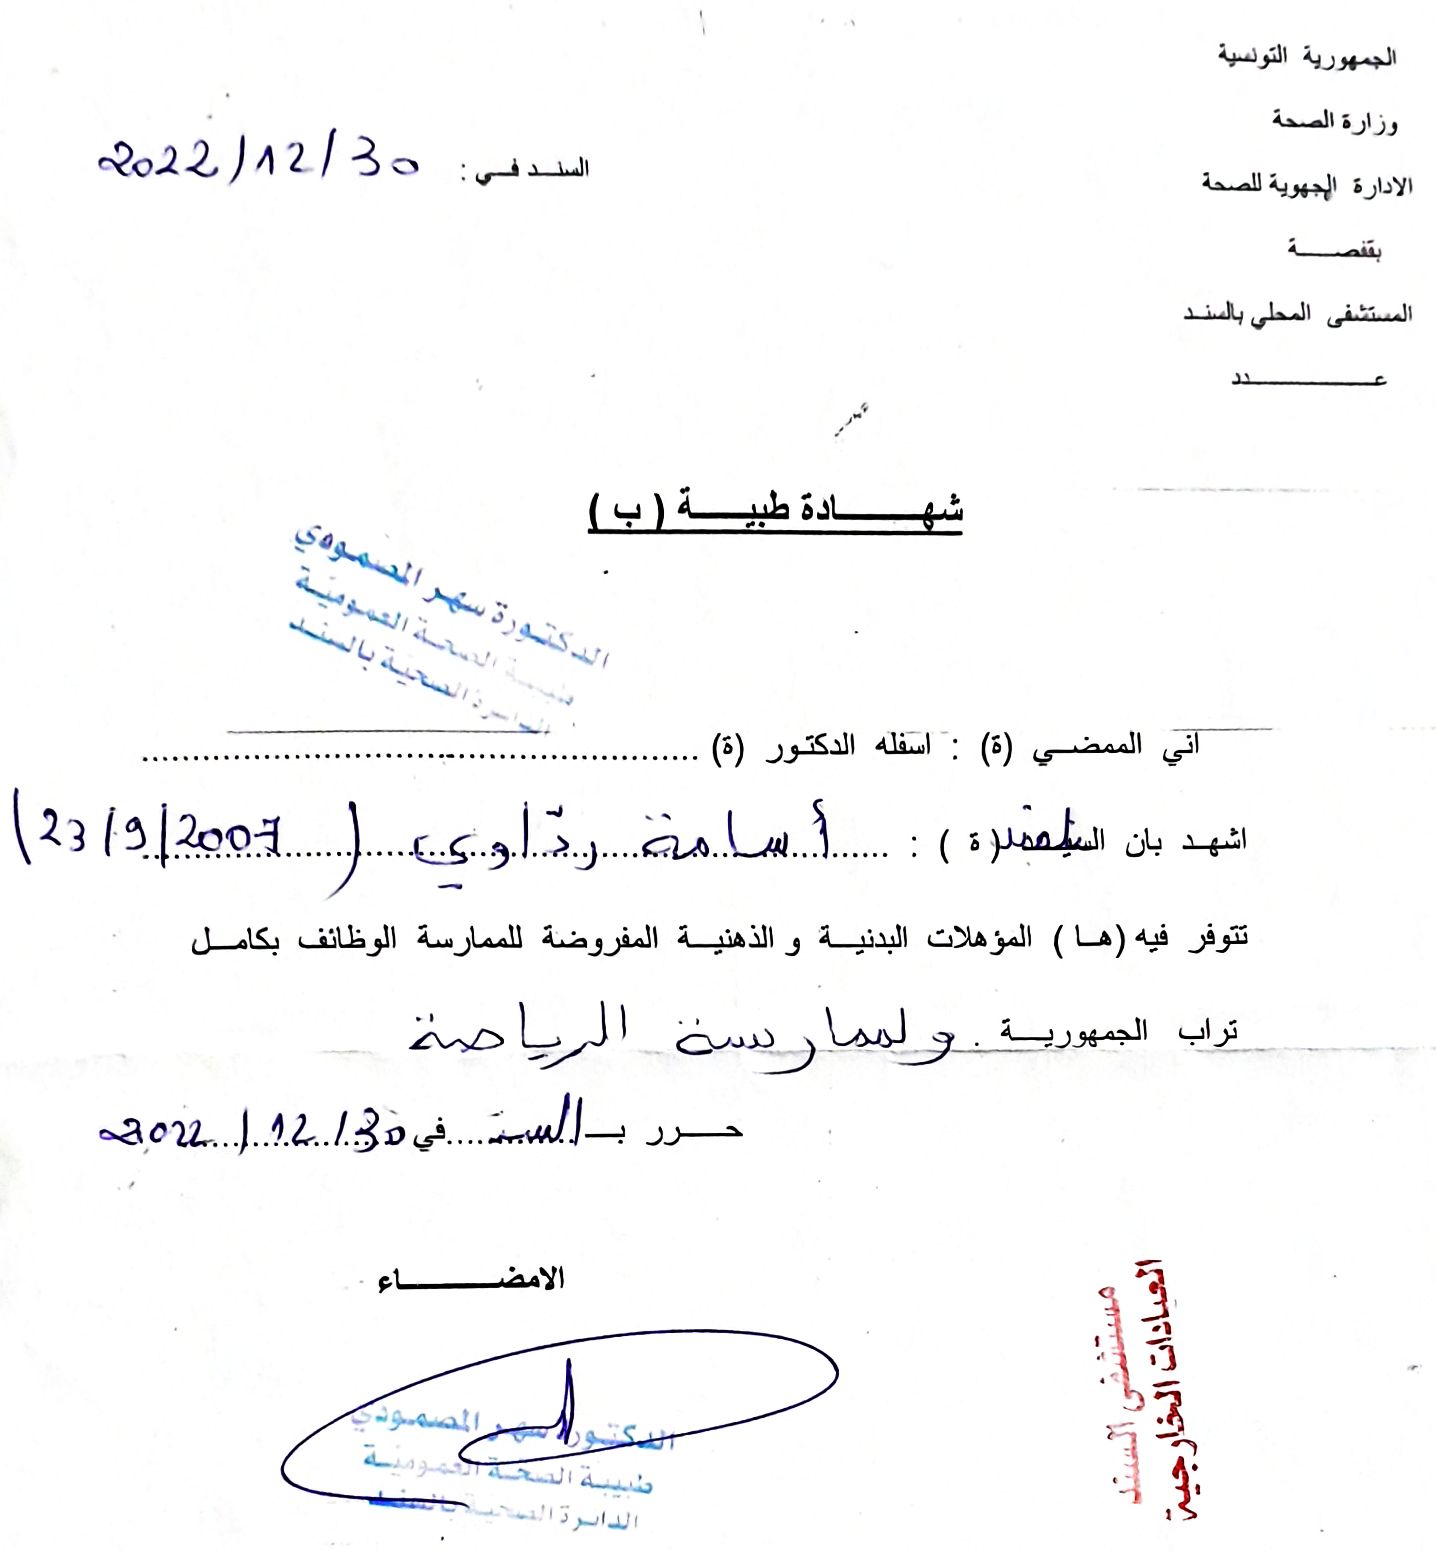 الجمهورية التونسية
وزارة الصحة
الادارة الجهوية للصحة
بقفصة
المستشفى المحلي بالسند
عدد
السند في : 2022/12/30
شهادة طبية ( ب )
الدكتورة سهر المصمودي
طبيبة الصحة العمومية
الدائرة الصحية بالسند
اني الممضي (ة) : اسفله الدكتور (ة) ........................
اشهد بان السيد ( ة ) : أسامة ردّاوي (23/9/2007)
تتوفر فيه (ها ) المؤهلات البدنية و الذهنية المفروضة للممارسة الوظائف بكامل
تراب الجمهورية . ولممارسة الرياضة
حرر بـ السند في 2022/12/30
الامضاء
الدكتورة سهر المصمودي
طبيبة الصحة العمومية
الدائرة الصحية بالسند
مستشفى السند
العيادات الخارجية